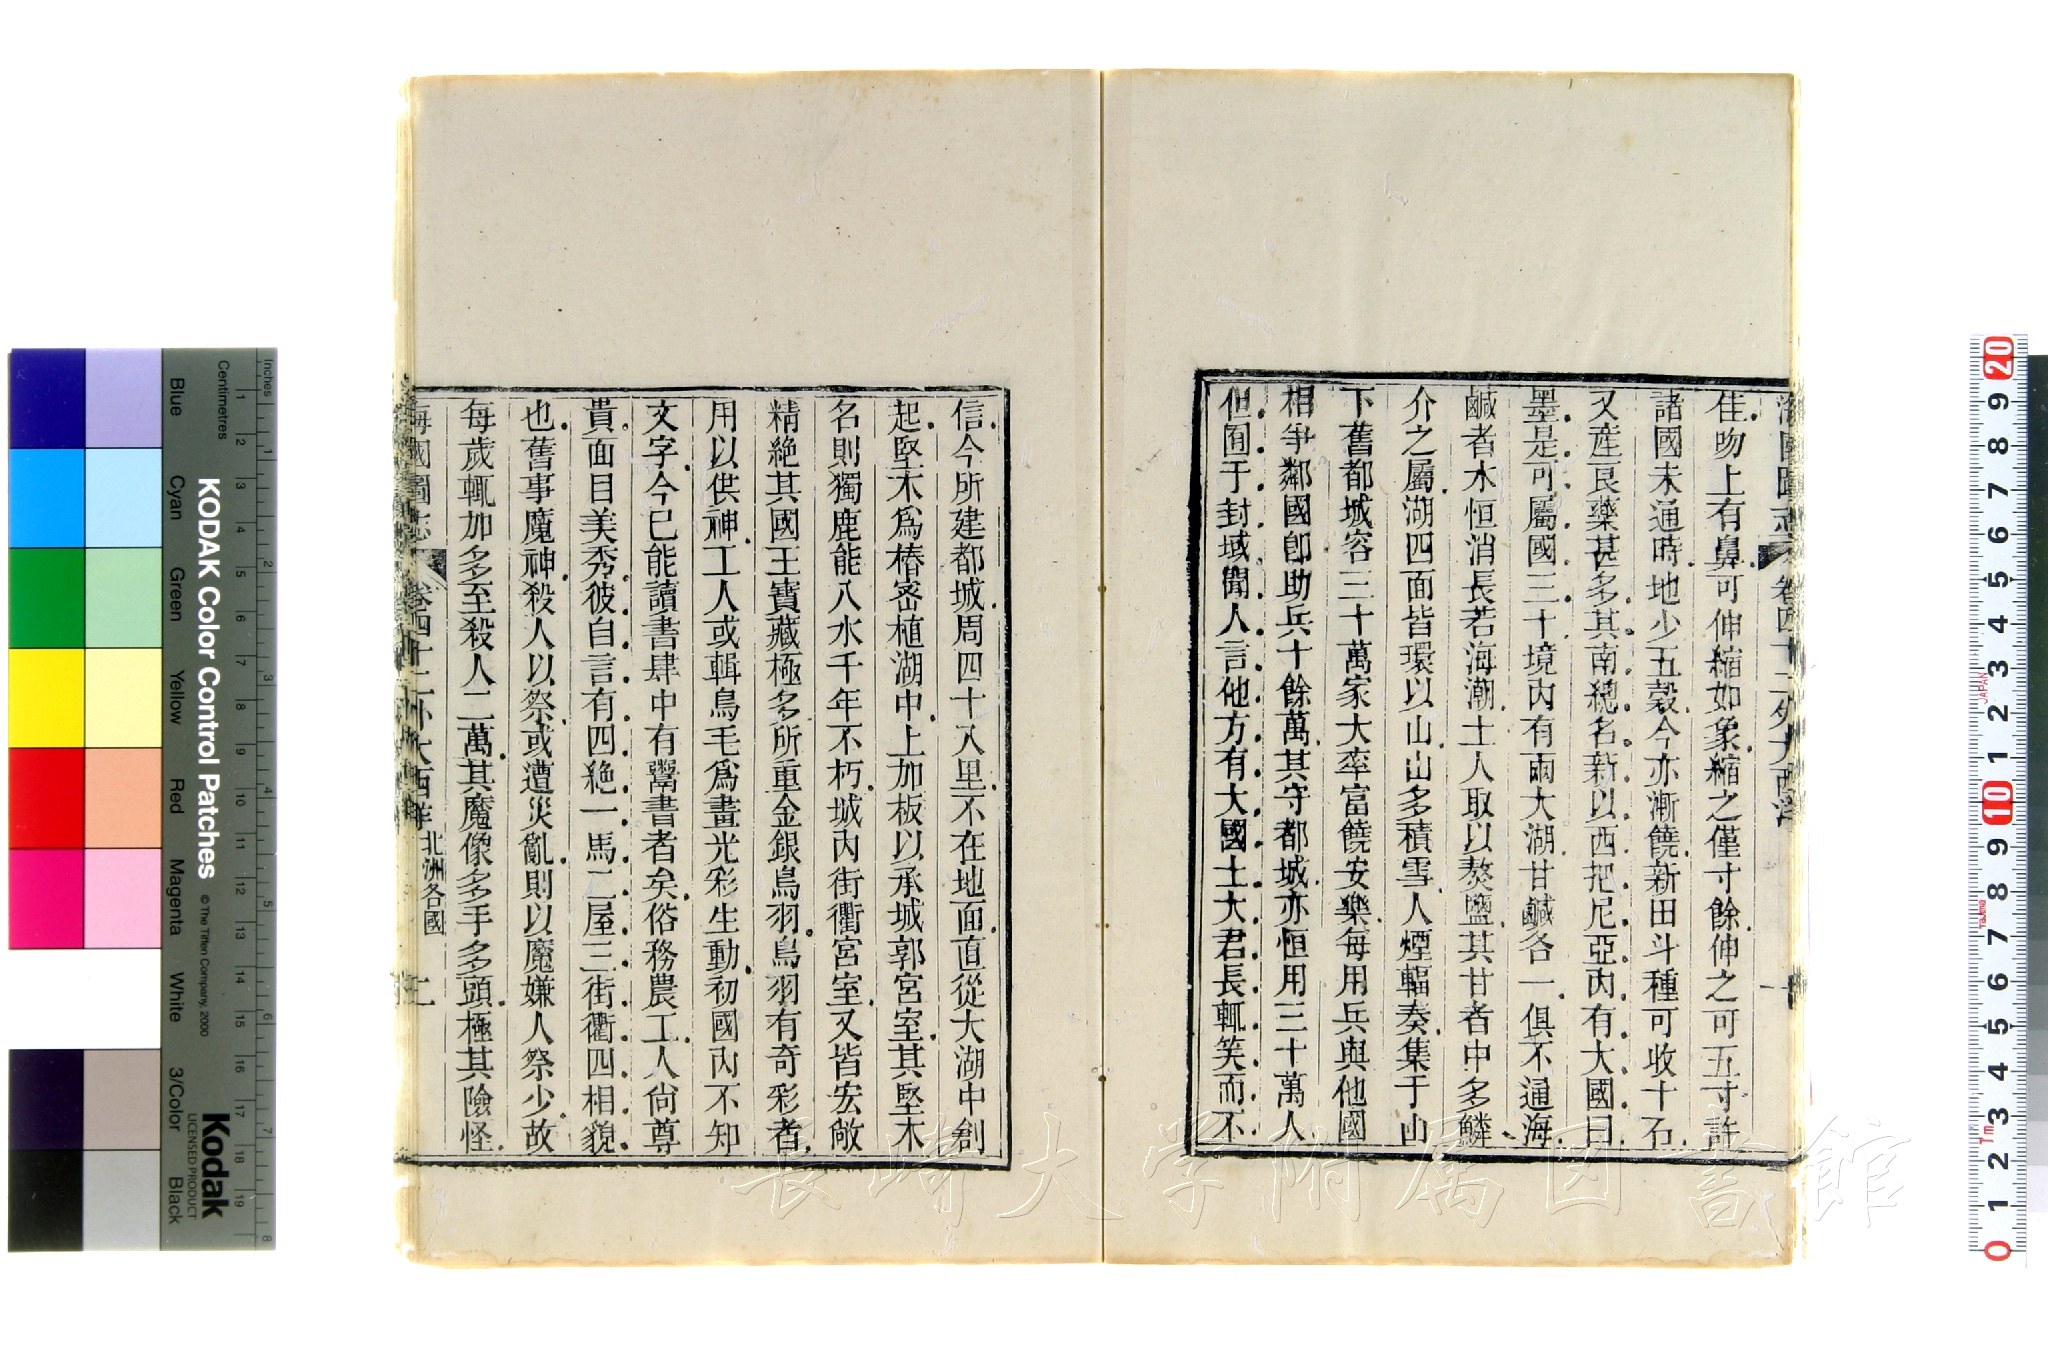 海國圖志 卷四十二 外大西洋 一
佳吻上有鼻可伸縮如象縮之僅寸餘伸之可五寸許
諸國未通時地少五穀今亦漸饒新田斗種可收十石
又産良藥甚多其南總名新以西把尼亞內有大國曰
墨是可屬國三十境內有兩大湖甘鹹各一俱不通海
鹹者水恒消長若海潮土人取以熬鹽其甘者中多鱗
介之屬湖四面皆環以山山多積雪人煙輻奏集于山
下舊都城容三十萬家大率富饒安樂每用兵與他國
相爭鄰國卽助兵十餘萬其守都城亦恒用三十萬人
但囿于封域聞人言他方有大國土大君長輒笑而不
信今所建都城周四十八里不在地面直從大湖中創
起堅木爲樁密植湖中上加板以承城郭宮室其堅木
名則獨鹿能入水千年不朽城內街衢宮室又皆宏敞
精絶其國王寶藏極多所重金銀鳥羽鳥羽有奇彩者
用以供神工人或輯鳥毛爲畫光彩生動初國內不知
文字今已能讀書肆中有鬻書者矣俗務農工人尙尊
貴面目美秀彼自言有四絶一馬二屋三街衢四相貌
也舊事魔神殺人以祭或遭災亂則以魔嫌人祭少故
每歲輒加多至殺人二萬其魔像多手多頭極其險怪
海國圖志 卷四十二 外大西洋 北洲各國 二
KODAK Color Control Patches
© The Tiffen Company, 2000
Kodak
LICENSED PRODUCT
Inches
Centimetres
Blue
Cyan
Green
Yellow
Red
Magenta
White
3/Color
Black
長崎大学附属図書館